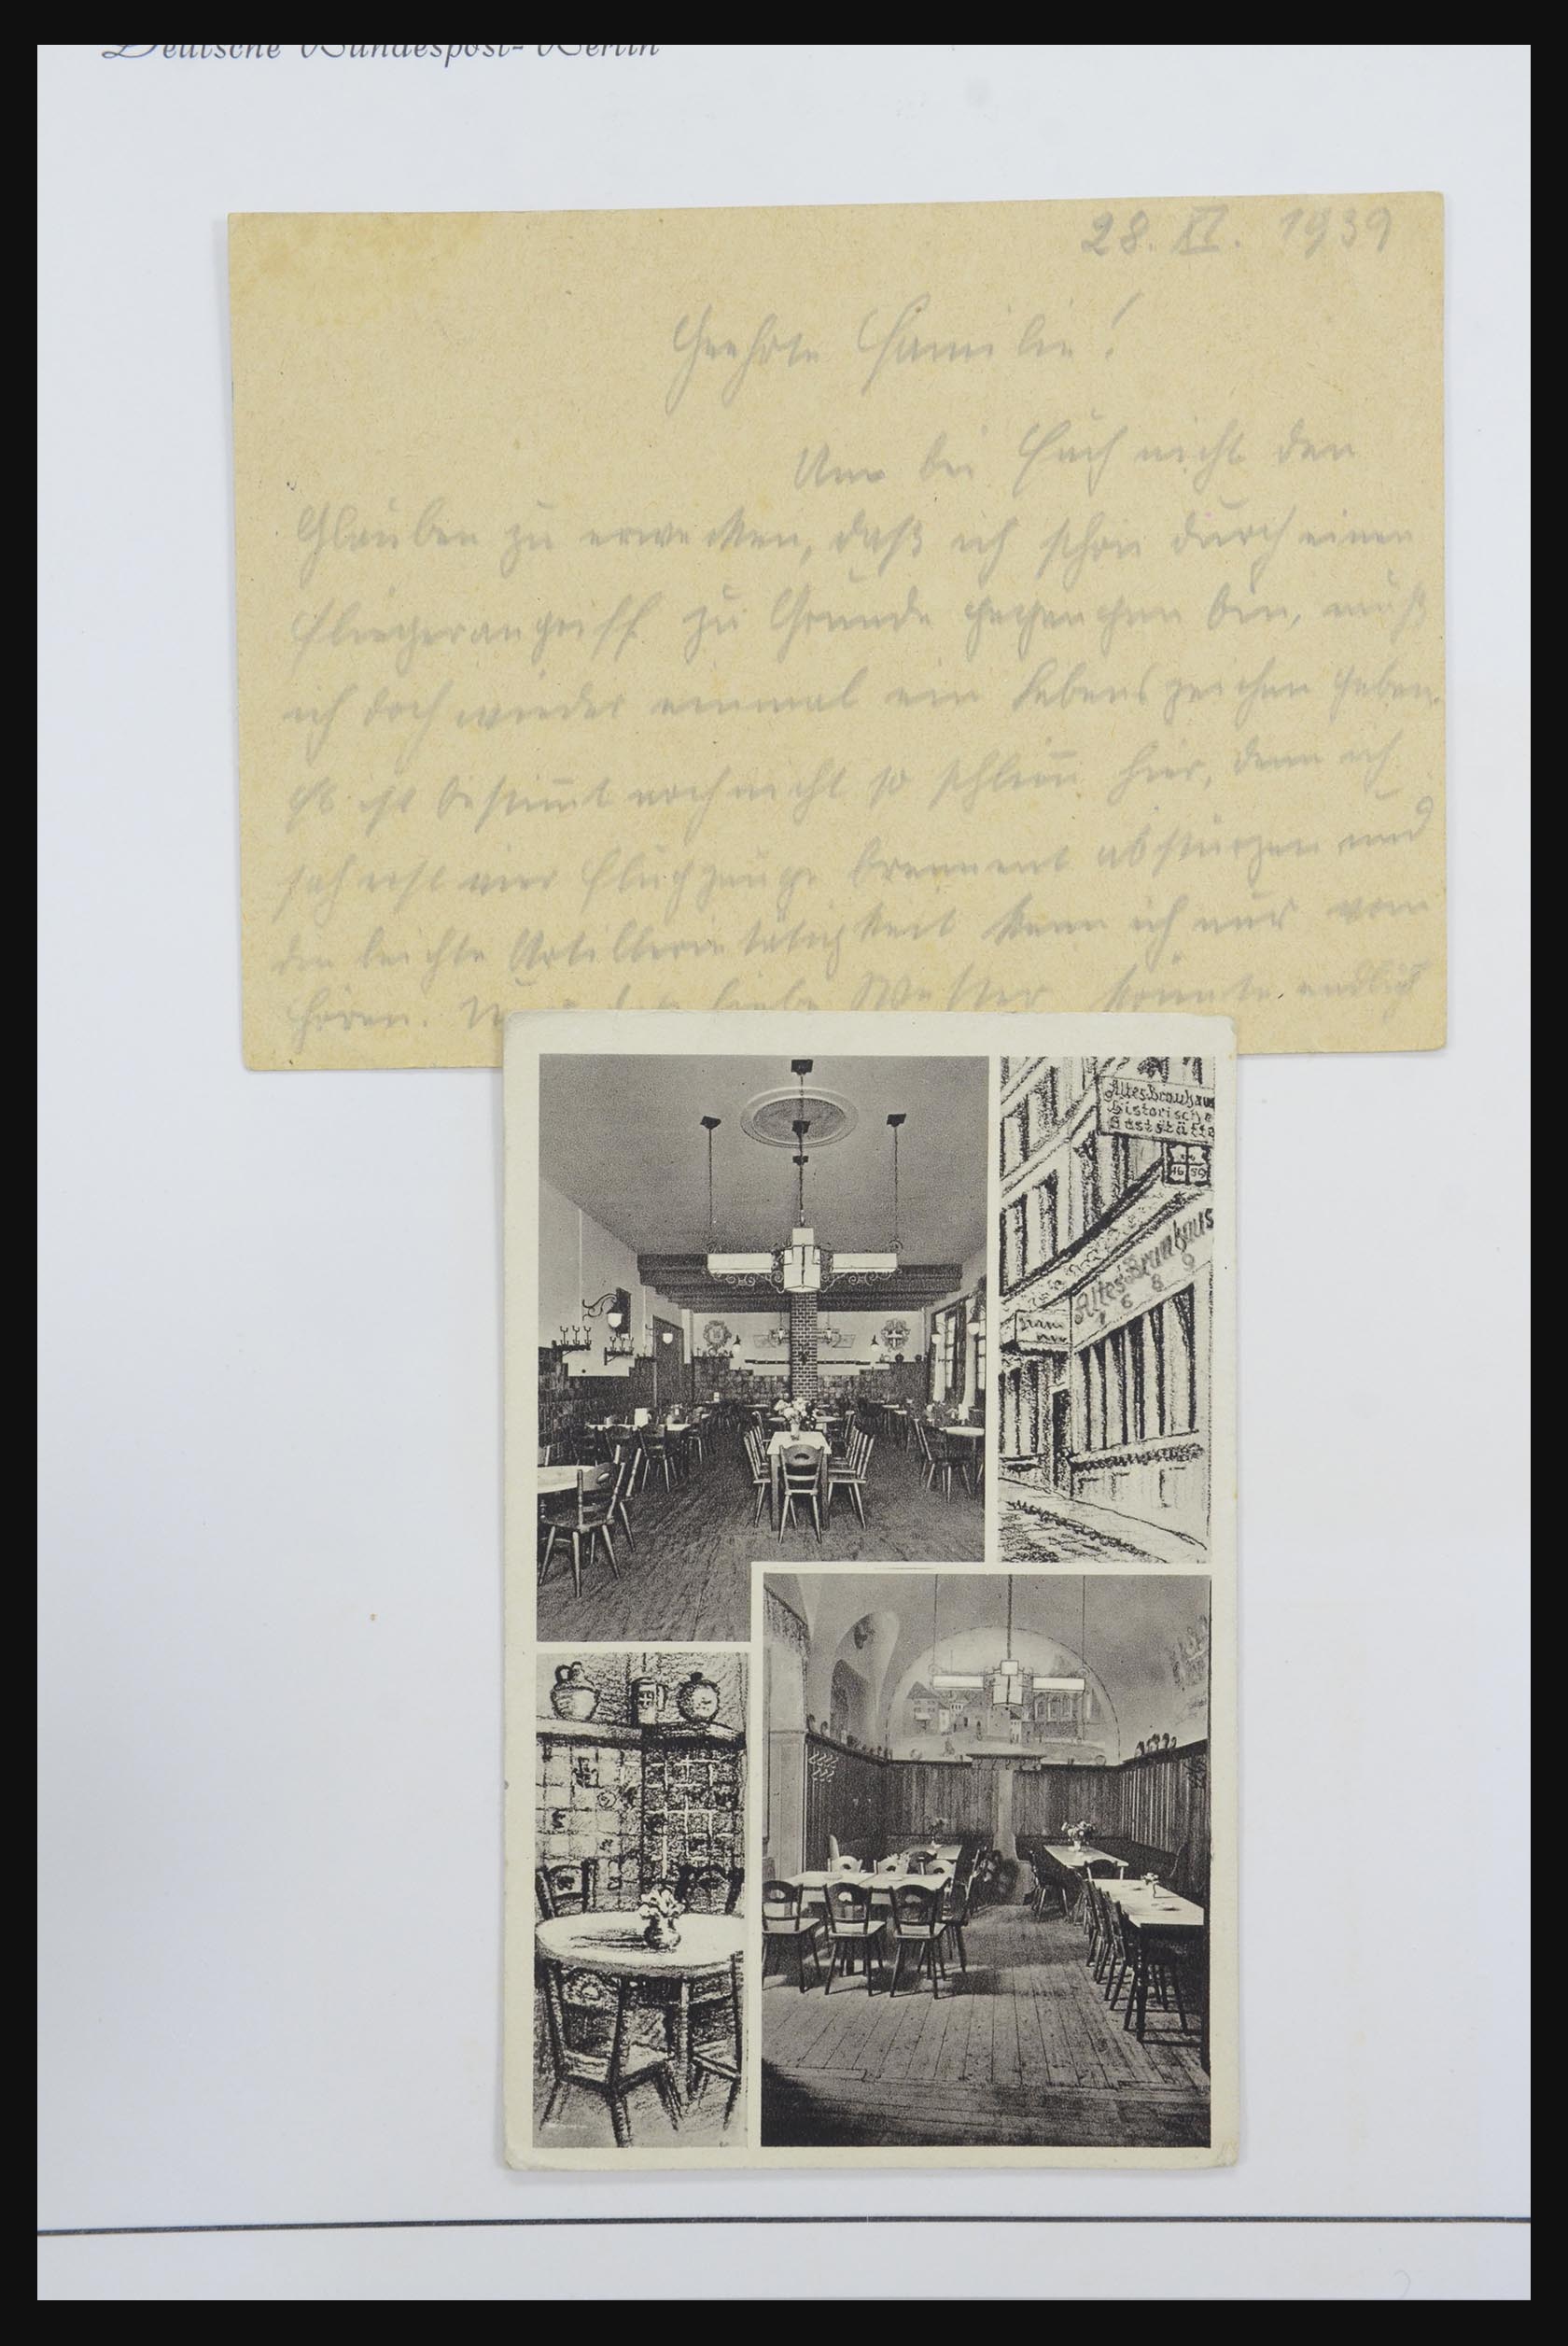 Deutsche Bundespost-Berlin
28. XI. 1939
Geehrte Familie!
Um bei Euch nicht den
Glauben zu erwecken, daß ich schon durch einen
Fliegerangriff zu Grunde gegangen bin, muß
ich doch wieder einmal ein Lebenszeichen geben.
Es ist bestimmt noch nicht so schlimm hier, denn ich
sah erst vier Flugzeuge brennent abstürzen und
die leichte Artillerietätigkeit kenn ich nur vom
hören. liebe könnte endlich
Altes Brauhaus
Historische
Gaststätte
16 89
Altes Brauhaus
1 6 8 9